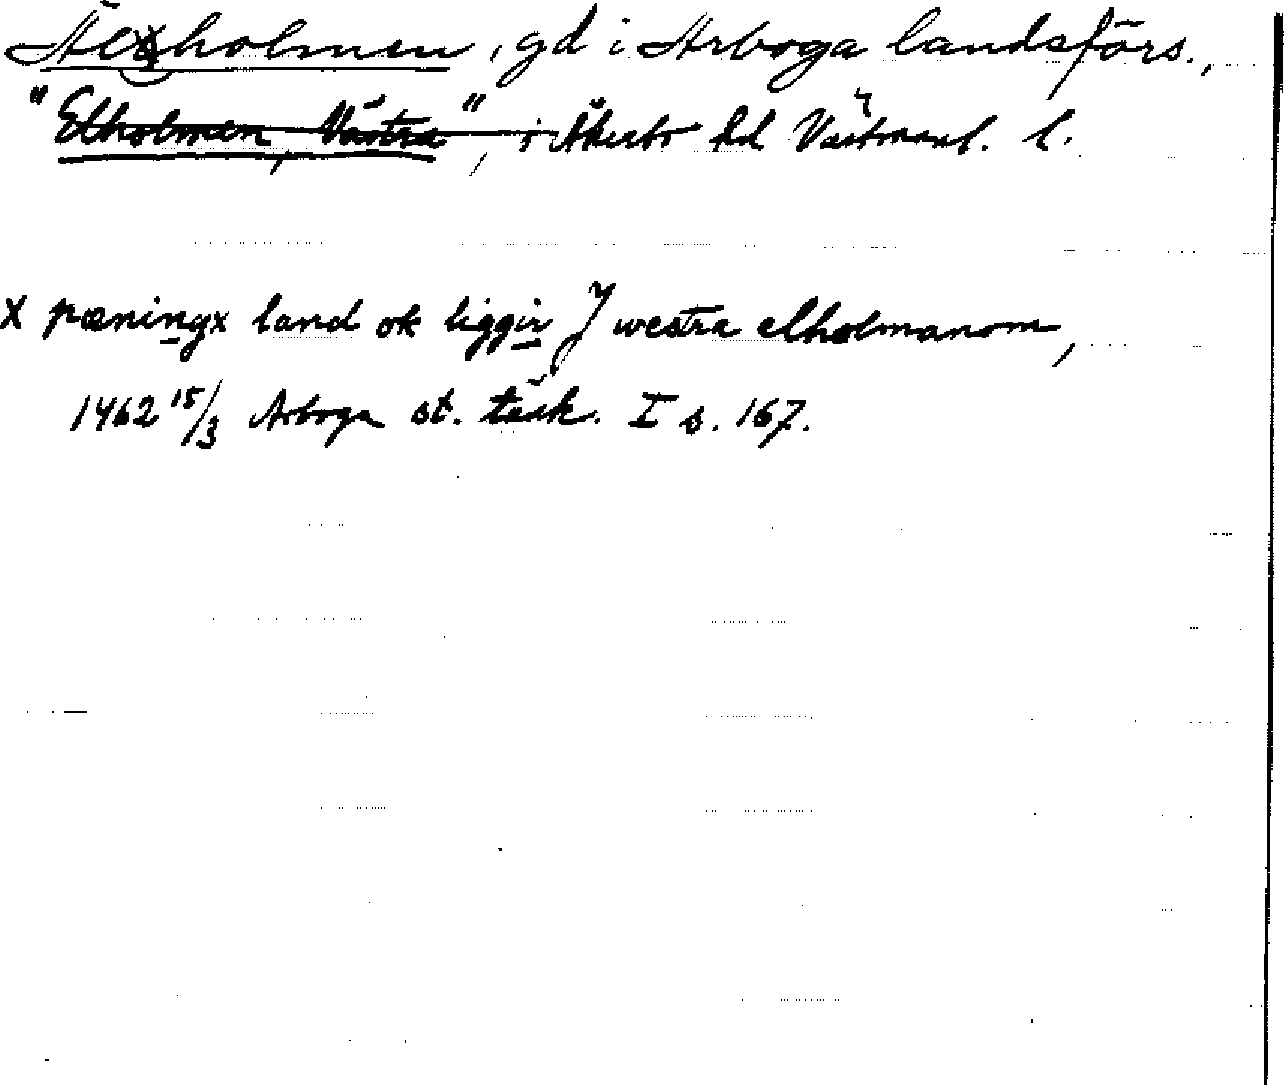 Älholmen, gd i Arboga landsförs.,
"Elholmen, Västra", i Åkerbo hd Västmanl. l.
X pæningx land ok liggir J westra elholmanom,
1462 15/3 Arboga st. tänk. I s. 167.